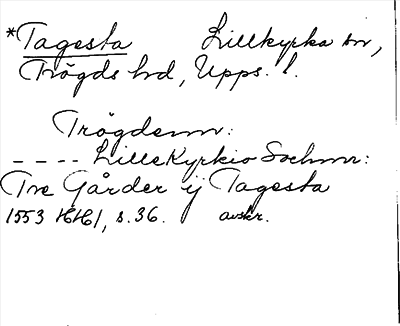 *Tagesta Lillkyrka sn,
Trögds hd, Upps. l.
Trögdenn:
---- LilleKyrkio Sochnn:
Tre Gårder ij Tagesta
1553 HH1, s. 36. avskr.